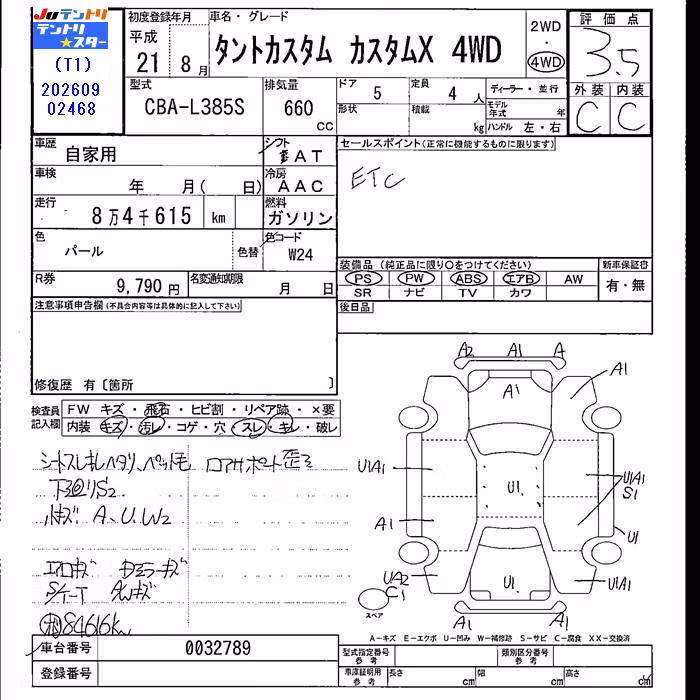 JUテントリ
テントリ★スター
(T1)
202609
02468
初度登録年月
平成
21年8月
車名・グレード
タントカスタム カスタムX 4WD
2WD
・
4WD
評価点
3.5
外装 内装
C C
型式
CBA-L385S
排気量
660
cc
ドア
5
形状
定員
4人
積載
kg
ディーラー・並行
モデル年式 年
ハンドル 左・右
車歴
自家用
シフト
AT
車検
年 月( 日)
冷房
AAC
走行
8万4千615 km
燃料
ガソリン
色
パール
色替
色コード
W24
R券
9,790円
名変通知期限
月 日
セールスポイント(正常に機能するものに限ります)
ETC
装備品 (純正品に限り○をつけてください)
PS PW ABS エアB AW
SR ナビ TV カワ
新車保証書
有・無
後日品
注意事項申告欄(不具合内容等は具体的に記入して下さい)
修復歴 有〔箇所 〕
検査員
記入欄
FW キズ・飛石・ヒビ割・リペア跡・×要
内装 キズ・汚レ・コゲ・穴・スレ・キレ・破レ
下廻りS2
小キズ A、U、W2
84616km
A2 A1 A
A1
A1
U1A1
U1
U1A1
S1
A1
U1
UA2
C1
スペア
U1
U1A1
A1 A1
A-キズ E-エクボ U-凹み W-補修跡 S-サビ C-腐食 XX-交換済
車台番号
0032789
登録番号
型式指定番号
参考
類別区分番号
参考
車庫証明用
参考
長さ cm
幅 cm
高さ cm